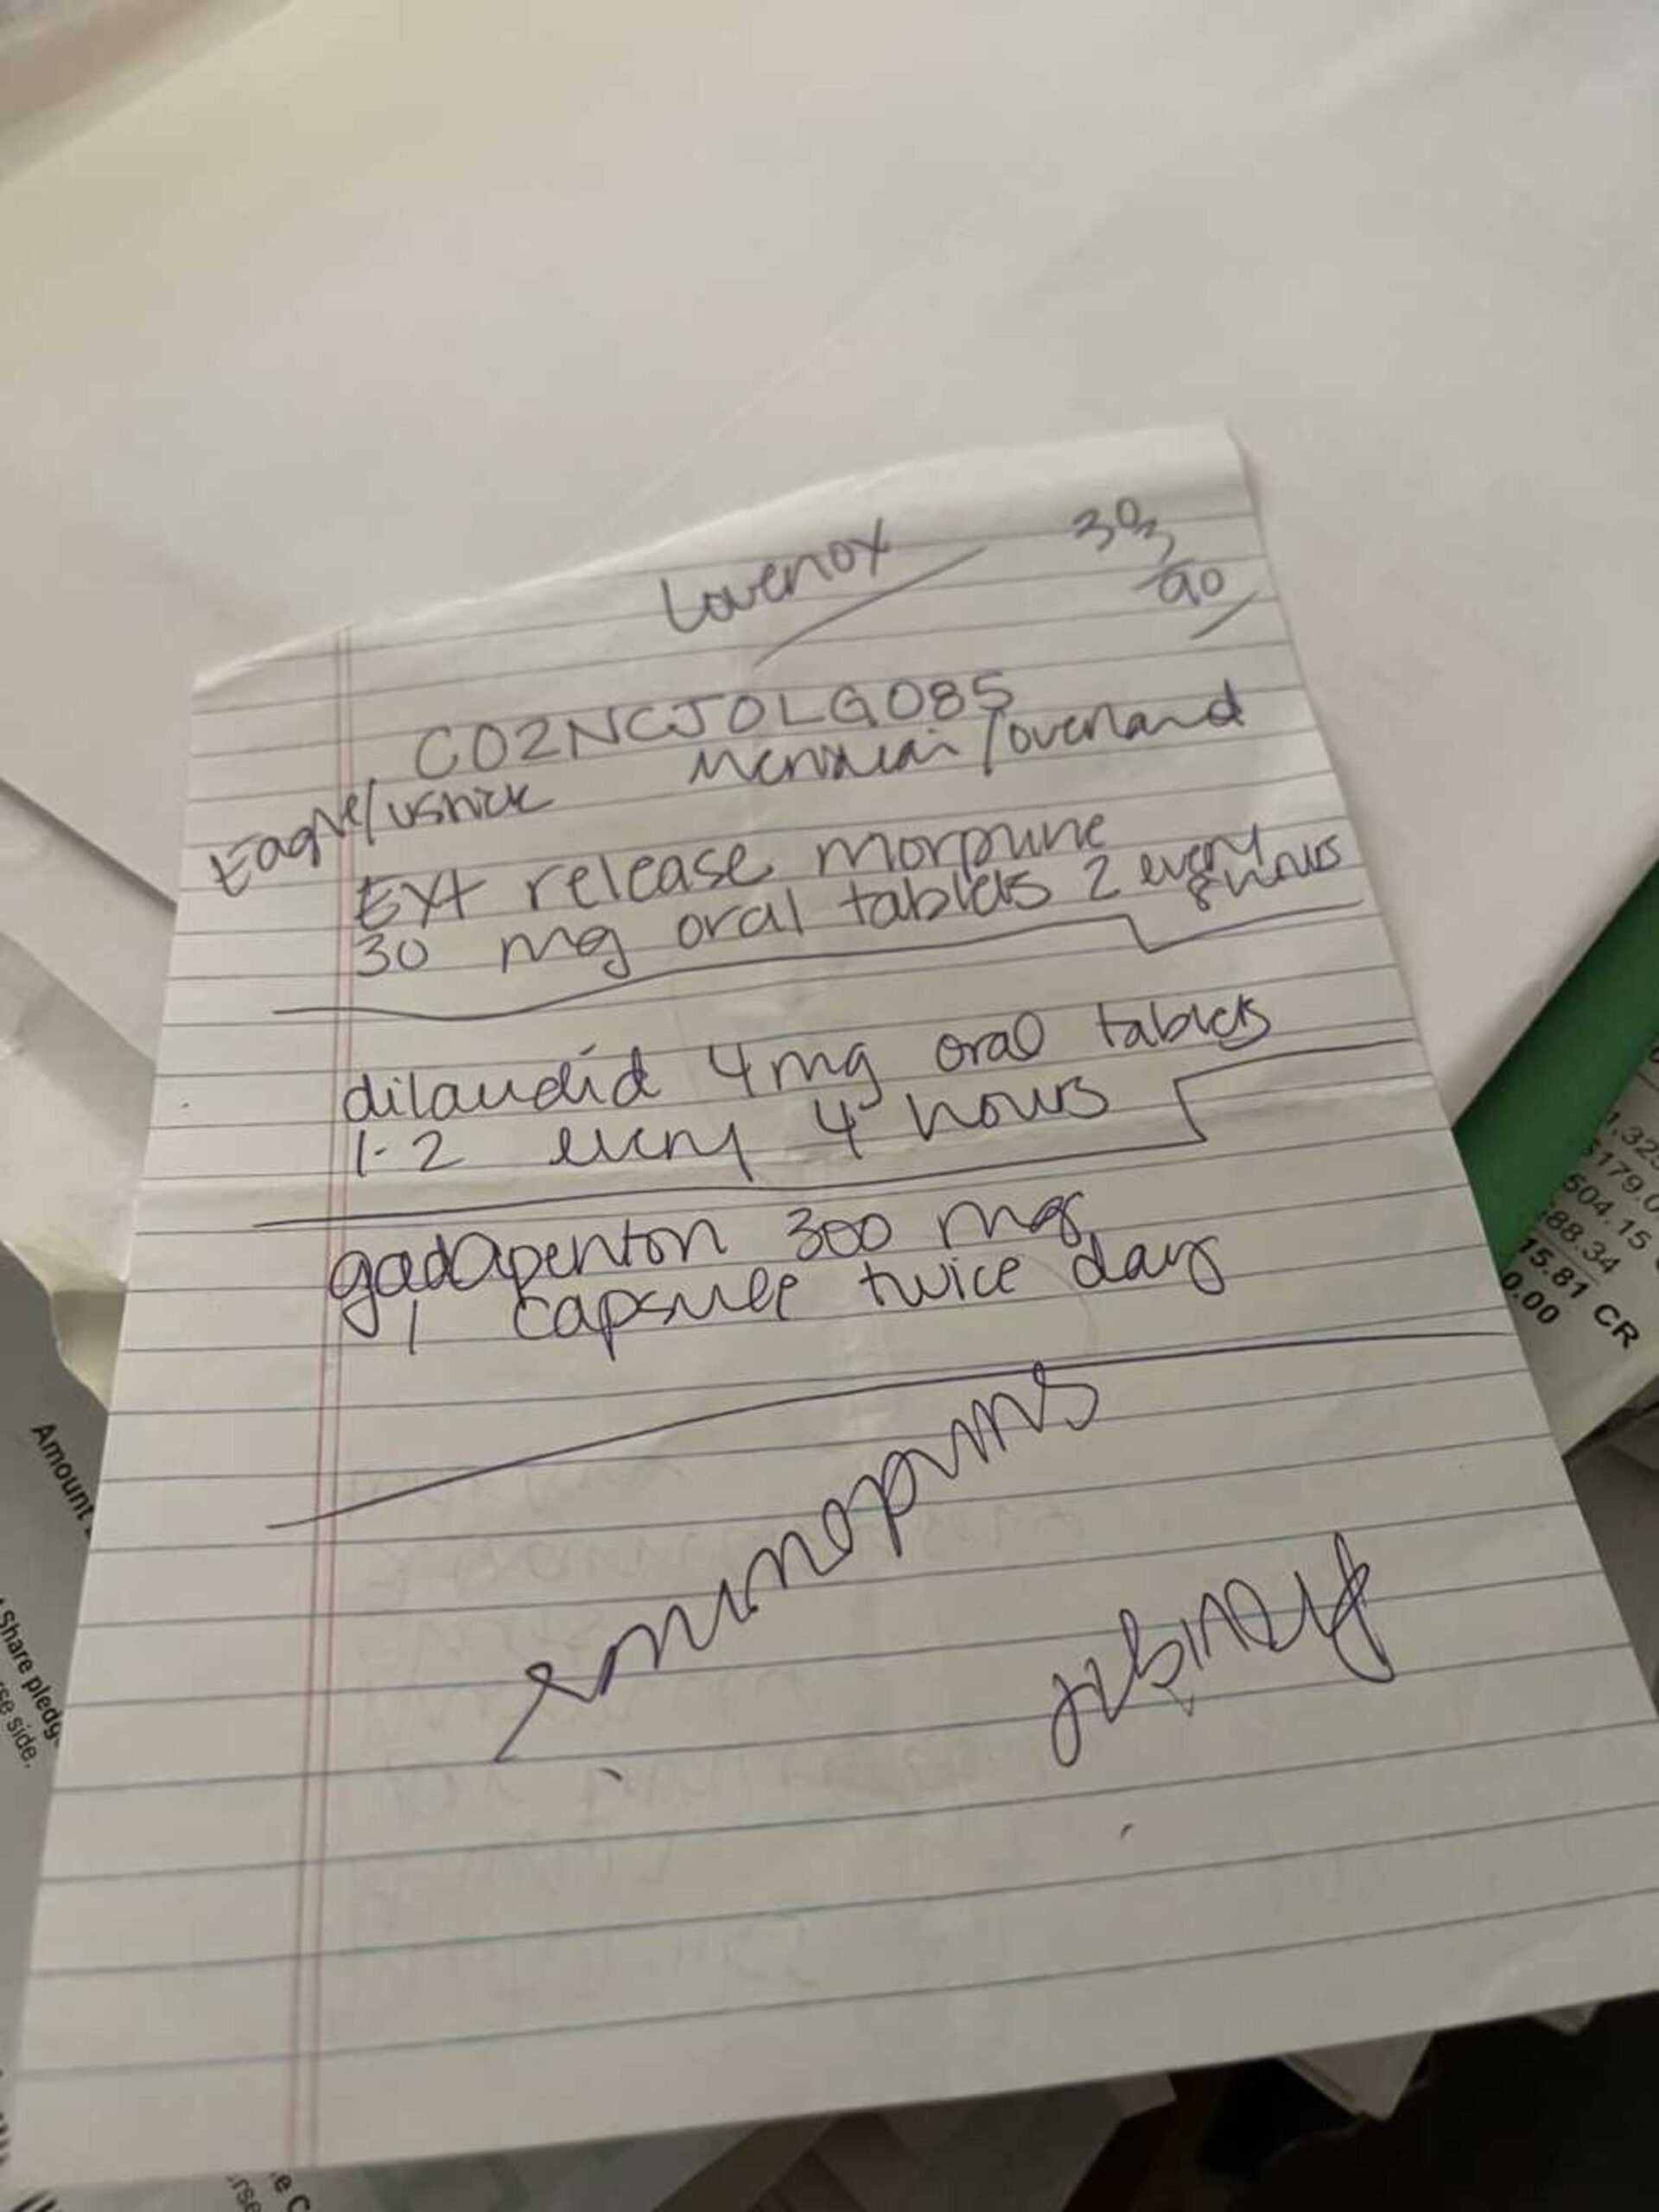 Lovenox
30
90
C02NCJ0LG085
Eagle/ustick
Meridian/overland
Ext release morphine
30 mg oral tablets 2 every
8 hours
dilaudid 4mg oral tablets
1-2 every 4 hours
gadapenton 300 mg
1 capsule twice day
1.32
$179.0
504.15
88.34
15.81 CR
0.00
Amount
Share pledg
se side.